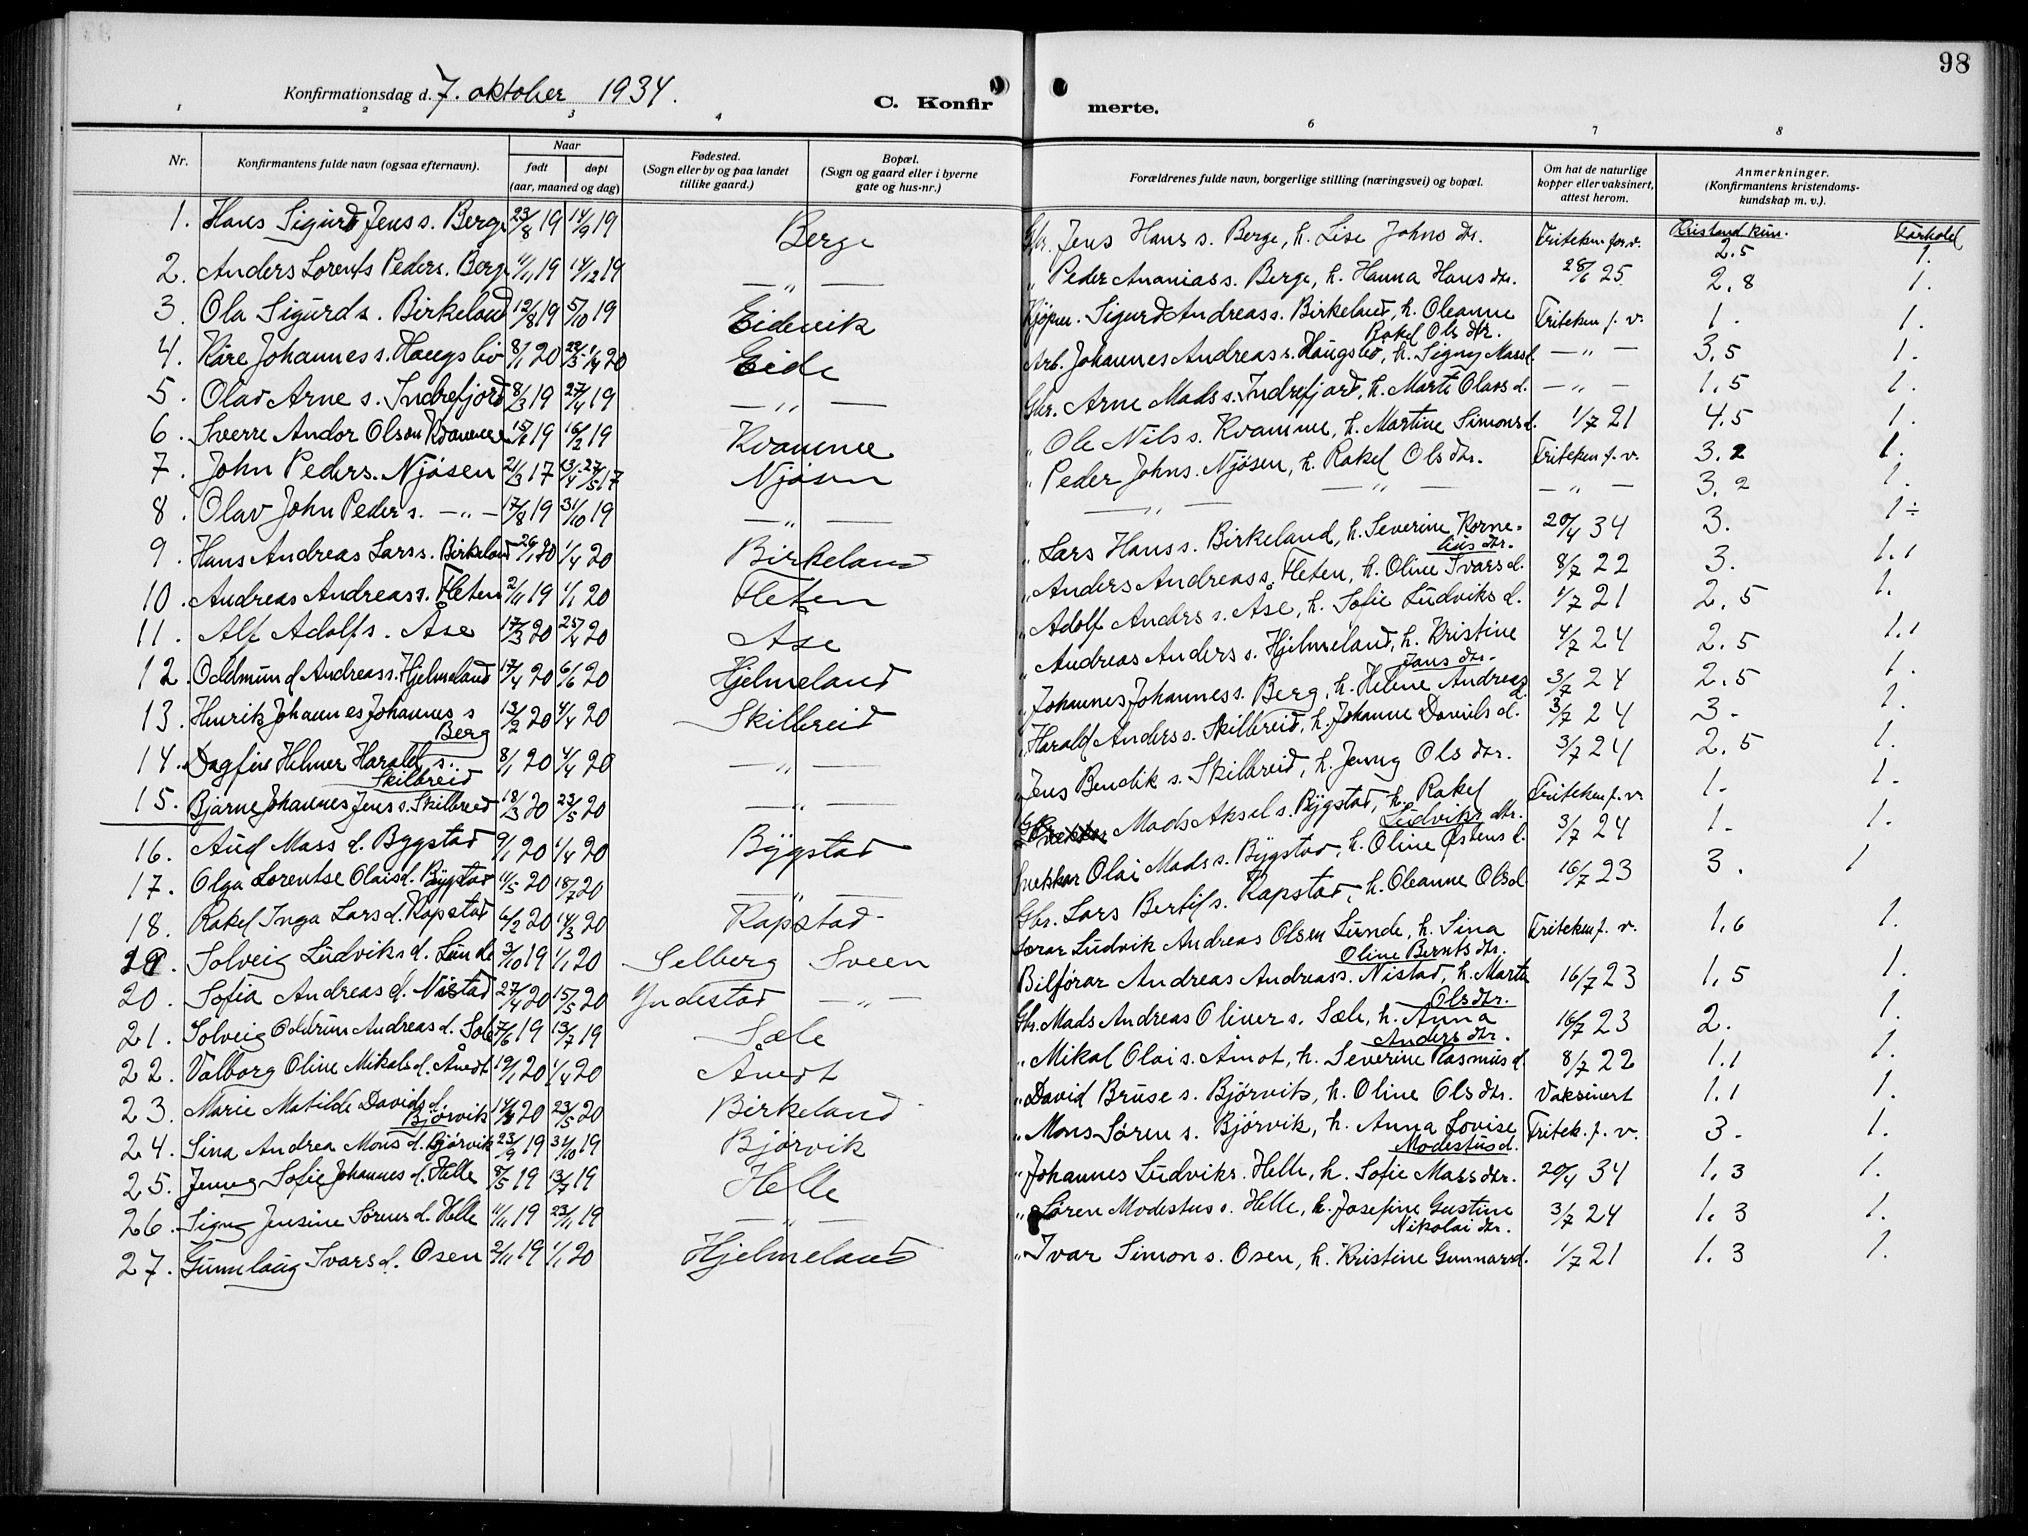 98
Konfirmationsdag d. 7. oktober 1934.
C. Konfirmerte.
1 2 3 4 6 7 8
Nr. Konfirmantens fulde navn (ogsaa efternavn). Naar født døpt (aar, maaned og dag) Fødested. (Sogn eller by og paa landet tillike gaard.) Bopæl. (Sogn og gaard eller i byerne gate og hus-nr.) Forældrenes fulde navn, borgerlige stilling (næringsvei) og bopæl. Om hat de naturlige kopper eller vaksinert, attest herom. Anmerkninger. (Konfirmantens kristendomskundskap m. v.).
Kristend.kun. Forhold
1. Hans Sigurd Jens s. Berge 23/8 19 14/9 19 Berge Gbr. Jens Hans s. Berge, h. Lise Johns dtr. Friteken for v. 2.5 1.
2. Anders Lorents Peders. Berge 4/11 19 14/12 19 — " — " Peder Ananias s. Berge, h. Hanna Hans dtr. 28/6 25 2.8 1.
3. Ola Sigurds. Birkeland 12/8 19 5/10 19 Eidevik Kjøpm. Sigurd Andreas s. Birkeland, h. Oleanne Rakel Ols dtr. Friteken f. v. 1. 1.
4. Kåre Johannes s. Haugsbø 8/1 20 20 Eide Arb. Johannes Andreas s. Haugsbø, h. Signy Mass d. — " — 3.5 1.
5. Olav Arne s. Indrefjord 8/3 19 27/4 19 — " — Gbr. Arne Mads s. Indrefjord, h. Marte Olavs d. — " — 1.5 1.
6. Sverre Andor Olson Kvamme 15/1 19 16/2 19 Kvamme " Ole Nils s. Kvamme, h. Martine Simons d. 1/7 21 4.5 1.
7. John Peders. Njøsen 21/3 17 17 Njøsen " Peder Johns. Njøsen, h. Rakel Ols dtr. Friteken f. v. 3.2 1.
8. Olav John Peder s. — " — 17/8 19 31/10 19 — " — " — " — — " — — " — 3.2 1.
9. Hans Andreas Lars s. Birkeland 26/1 20 1/4 20 Birkeland " Lars Hans s. Birkeland, h. Severine Kornelius dtr. 20/4 34 3. 1÷
10. Andreas Andreas s. Fleten 2/11 19 1/1 20 Fleten " Anders Andreas s. Fleten, h. Oline Ivars d. 8/7 22 3. 1.1
11. Alf Adolf s. Åse 17/3 20 25/4 20 Åse " Adolf Anders s. Åse, h. Sofie Ludviks d. 1/7 21 2.5 1.
12. Oddmund Andreas s. Hjelmeland 17/4 20 6/6 20 Hjelmeland " Andreas Anders s. Hjelmeland, h. Kristine Jans dtr. 4/7 24 2.5 1.1
13. Henrik Johannes Johannes s Berg 13/2 20 4/4 20 Skilbreid " Johannes Johannes s. Berg, h. Helene Andreas d. 3/7 24 2.5 1.
14. Dagfin Helmer Harald s. Skilbreid 8/1 20 4/4 20 — " — " Harald Anders s. Skilbreid, h. Johanne Daniels d. 3/7 24 3. 1.
15. Bjarne Johannes Jens s. Skilbreid 18/3 20 23/5 20 — " — " Jens Bendik s. Skilbreid, h. Jenny Ols dtr. 3/7 24 2.5 1.
16. Aud Mass d. Bygstad 9/1 20 4/4 20 Bygstad Mads Aksel s. Bygstad, h. Rakel Ludviks dtr. Friteken f. v. 1. 1.
17. Olga Lorentse Olais d. Bygstad 11/5 20 18/7 20 — " — Snekkar Olai Mads s. Bygstad, h. Oline Østens d. 3/7 24 1. 1.
18. Rakel Inga Lars d. Rapstad 6/2 20 14/3 20 Rapstad Gbr. Lars Bertil s. Rapstad, h. Oleanne Ols d. 16/7 23 3. 1
19. Solveig Ludviks d. Lunde 3/10 19 1/1 20 Selberg Sveen Ludvik Andreas Olsen Lunde, h. Sina Oline Bernts dtr. Friteken f. v. 1.6 1.
20. Sofia Andreas d. Nistad 27/4 20 15/5 20 Yndestad — " — Bilførar Andreas Andreas s. Nistad, h. Marta Ols dtr. 16/7 23 1.5 1.
21. Solveig Oddrun Andreas d. Sæle 7/6 19 13/7 19 Sæle Gbr. Mads Andreas Oliver s. Sæle, h. Anna Anders dtr. 16/7 23 2. 1.
22. Valborg Oline Mikals d. Åmot 19/1 20 4/4 20 Åmot " Mikal Olai s. Åmot, h. Severine Rasmus d. 8/7 22 1.1 1.
23. Marie Matilde Davids d. Bjørvik 20 23/5 20 Birkeland " David Bruse s. Bjørvik, h. Oline Ols dtr. Vaksinert 1.1 1.
24. Sina Andrea Mons d. Bjørvik 23/9 19 31/10 19 Bjørvik " Mons Søren s. Bjørvik, h. Anna Lovise Modestus d. Fritek. f. v. 3. 1.
25. Jenny Sofie Johannes d. Helle 8/5 19 13/7 19 Helle " Johannes Ludviks. Helle, h. Sofie Mass dtr. 20/4 34 1.3 1.
26. Signy Jensine Sørens d. Helle 11/11 19 23/11 19 — " — " Søren Modestus s. Helle, h. Josefine Gustine Nikolai dtr. 3/7 24 1.3 1.
27. Gunnlaug Ivars d. Osen 2/11 19 1/1 20 Hjelmeland " Ivar Simon s. Osen, h. Kristine Gunnars d. 1/7 21 1.3 1.